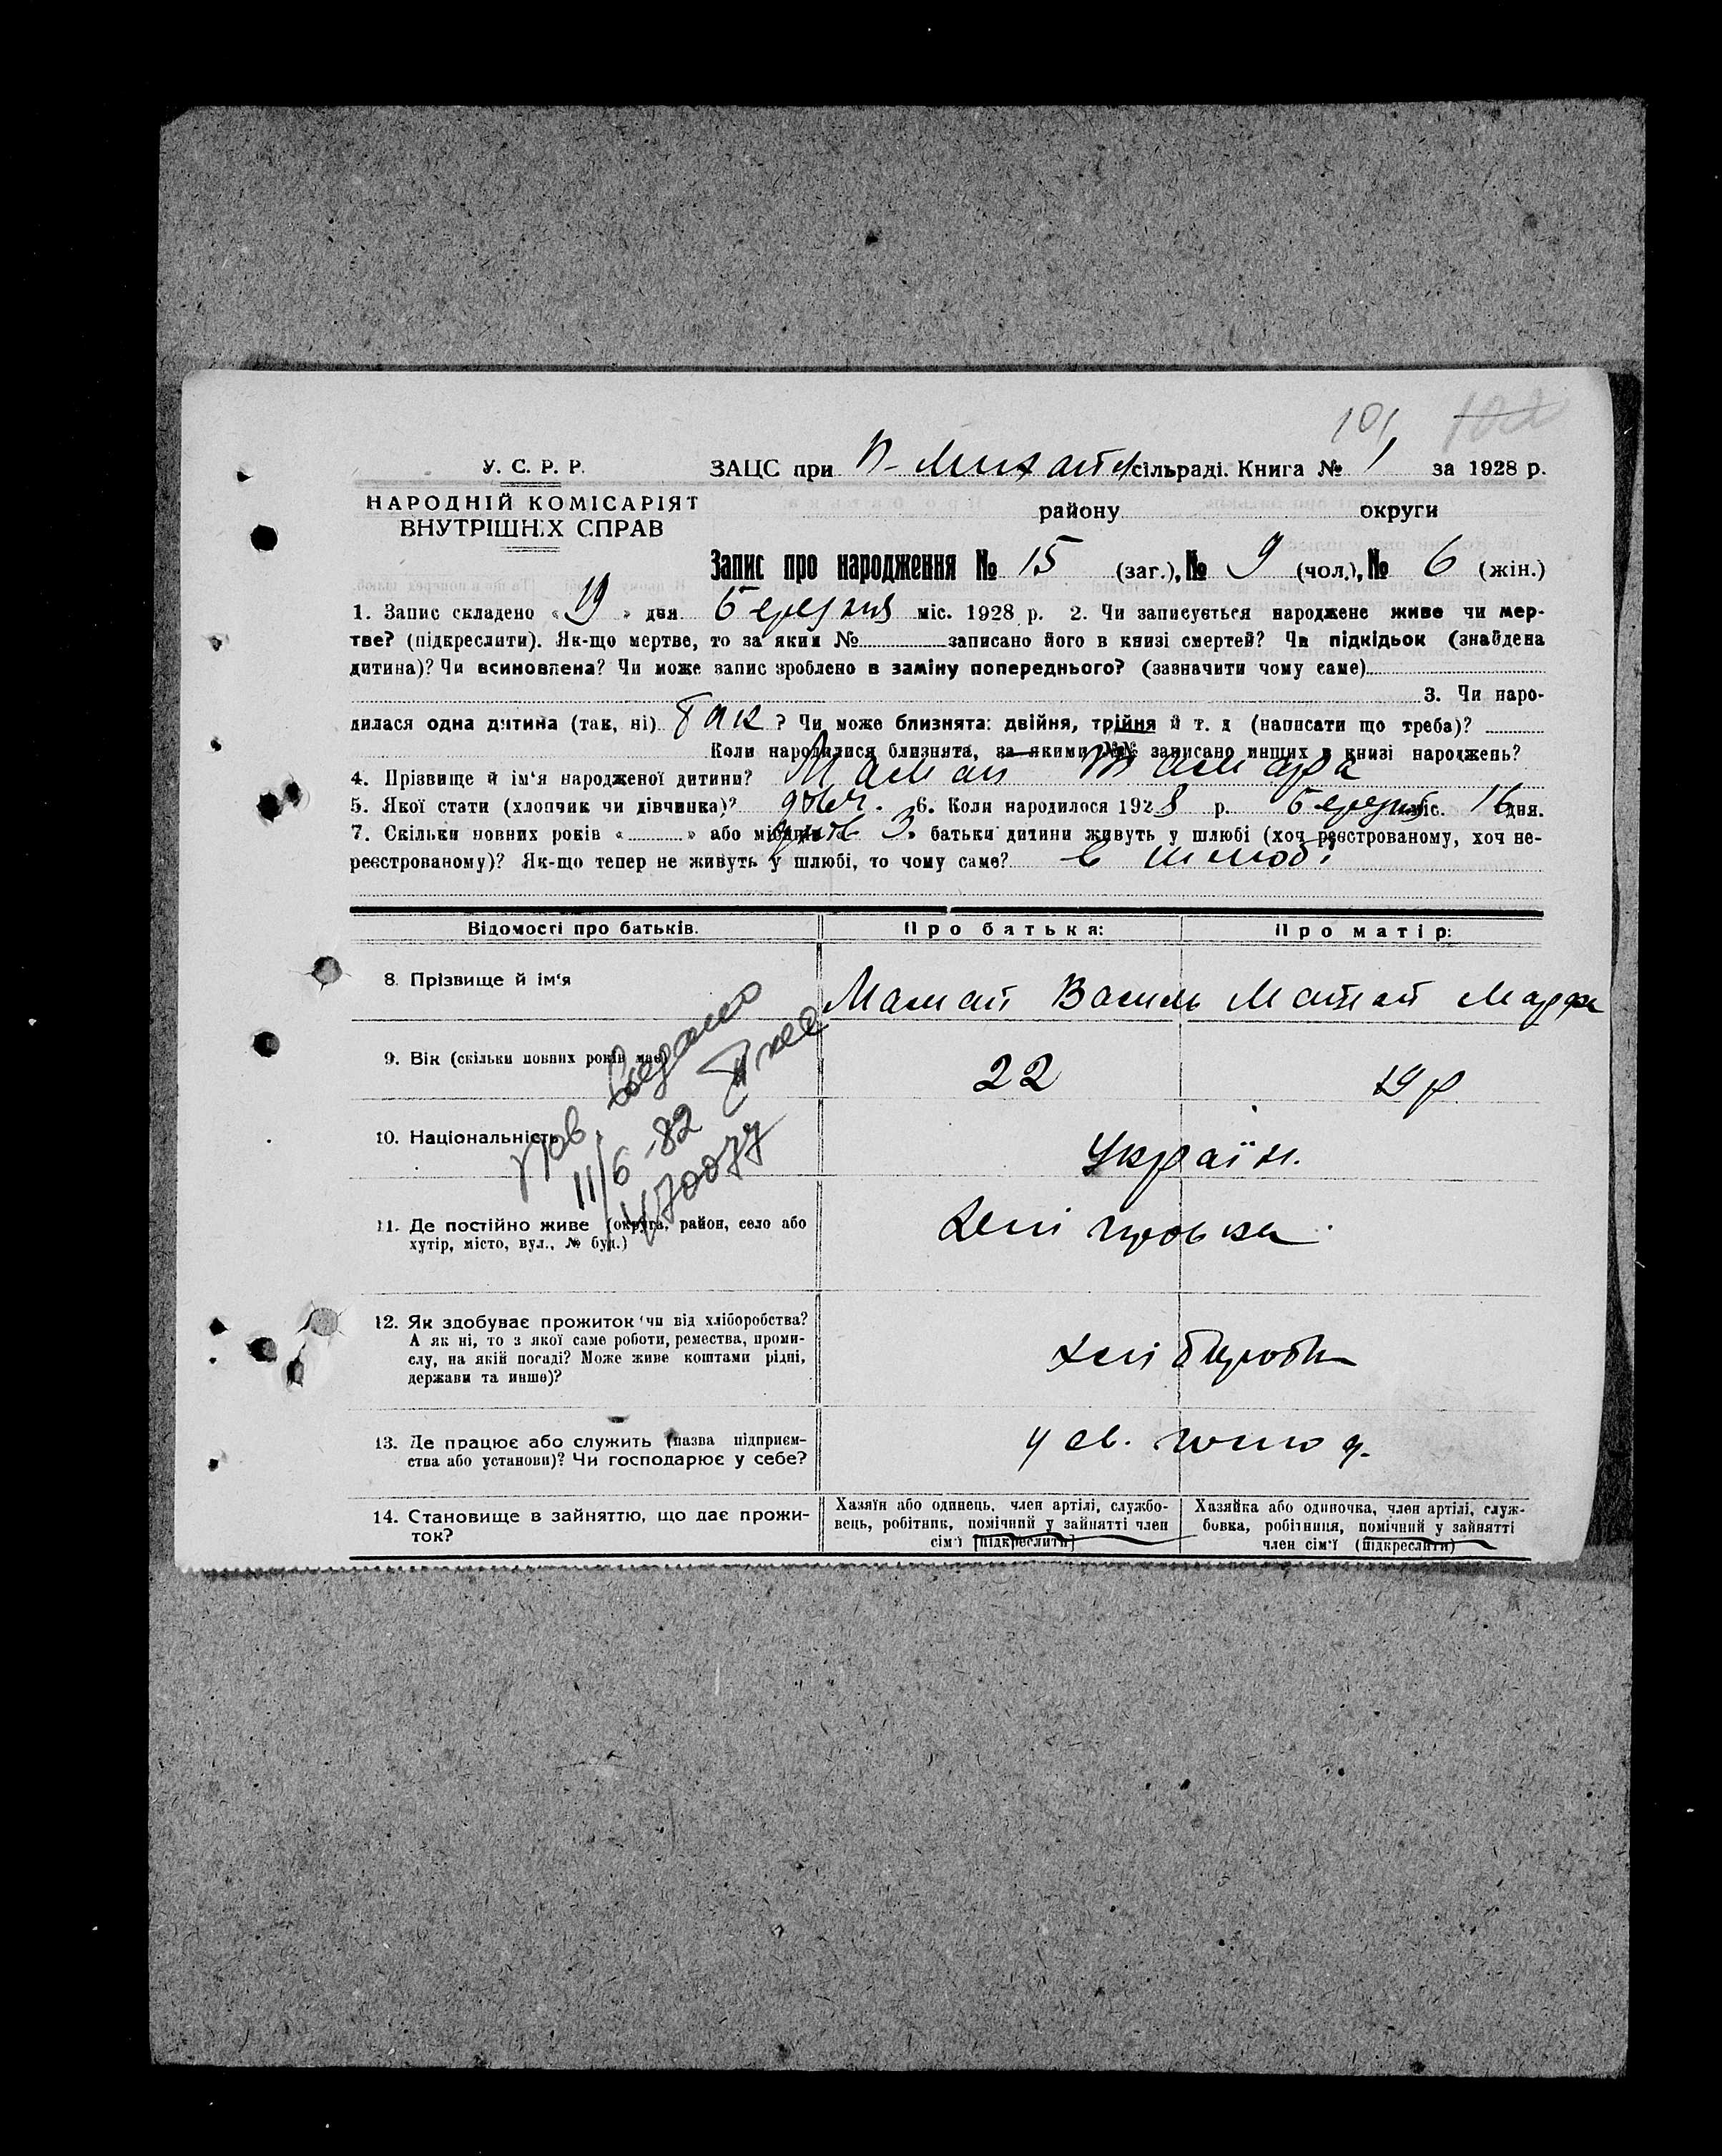 101
У. С. Р. Р.
НАРОДНІЙ КОМІСАРІЯТ
ВНУТРІШНІХ СПРАВ
ЗАЦС при сільраді. Книга № 1 за 1928 р.
району округи
Запис про народження № 15 (заг.), № 9 (чол.), № 6 (жін.)
1. Запис складено «19» дня березня міс. 1928 р. 2. Чи записується народжене живе чи мер-
тве? (підкреслити). Як-що мертве, то за яким № записано його в книзі смертей? Чи підкідьок (знайдена
дитина)? Чи всиновлена? Чи може запис зроблено в заміну попереднього? (зазначити чому саме)
3. Чи наро-
дилася одна дитина (так, ні) Так ? Чи може близнята: двійня, трійня й т. д (написати що треба)?
Коли народилися близнята, за якими №№ записано инших в книзі народжень?
4. Прізвище й ім'я народженої дитини? Мамай Тамара
5. Якої стати (хлопчик чи дівчинка)? дівч. 6. Коли народилося 1928 р. березня міс. 16 дня.
7. Скільки повних років « » або місяців 3 батьки дитини живуть у шлюбі (хоч реєстрованому, хоч не-
реєстрованому)? Як-що тепер не живуть у шлюбі, то чому саме? в шлюбі
Відомості про батьків. Про батька: Про матір:
8. Прізвище й ім'я Мамай Василь Мамай Марфа
9. Вік (скільки повних років має) 22 19 р
10. Національність Україн.
пов. видано
11/6-82
470077
11. Де постійно живе (округа, район, село або
хутір, місто, вул., № буд.)
12. Як здобуває прожиток (чи від хліборобства?
А як ні, то з якої саме роботи, ремества, проми-
слу, на якій посаді? Може живе коштами рідні,
держави та инше)?
хлібороби
13. Де працює або служить (назва підприєм-
ства або установи)? Чи господарює у себе?
у св. господ.
14. Становище в зайняттю, що дає прожи-
ток?
Хазяїн або одинець, член артілі, службо-
вець, робітник, помічний у зайнятті член
сім'ї [підкреслити]
Хазяйка або одиночка, член артілі, служ-
бовка, робітниця, помічний у зайнятті
член сім'ї (підкреслити)